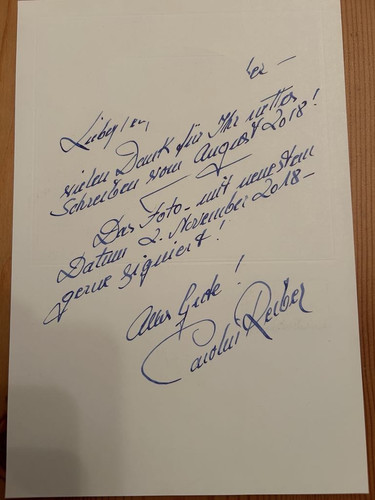 vielen Dank für Ihr nettes
Schreiben vom August 2018!
Das Foto - mit neuestem
Datum 2. November 2018 -
gerne signiert!
Alles Gute!
Carolin Reiber